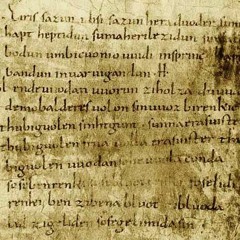 Eiris sazun idisi sazun hera duoder suma
hapt heptidun suma heri lezidun suma
bodun umbicuonio uuidi insprinc hapt
bandun inuar uigandun · H ·
ol ende uuodan uuorun zi holza du uuart
demo balderes uolon sin uuoz birenkict
thu biguolen sinhtgunt · sunna era suister
thu biguolen friia uolla era suister thu
biguolen uuodan so he uuola conda
sose benrenki sose lidi
renki ben zi bena bluot zi bluoda
lid zi geliden sose gelimida sin